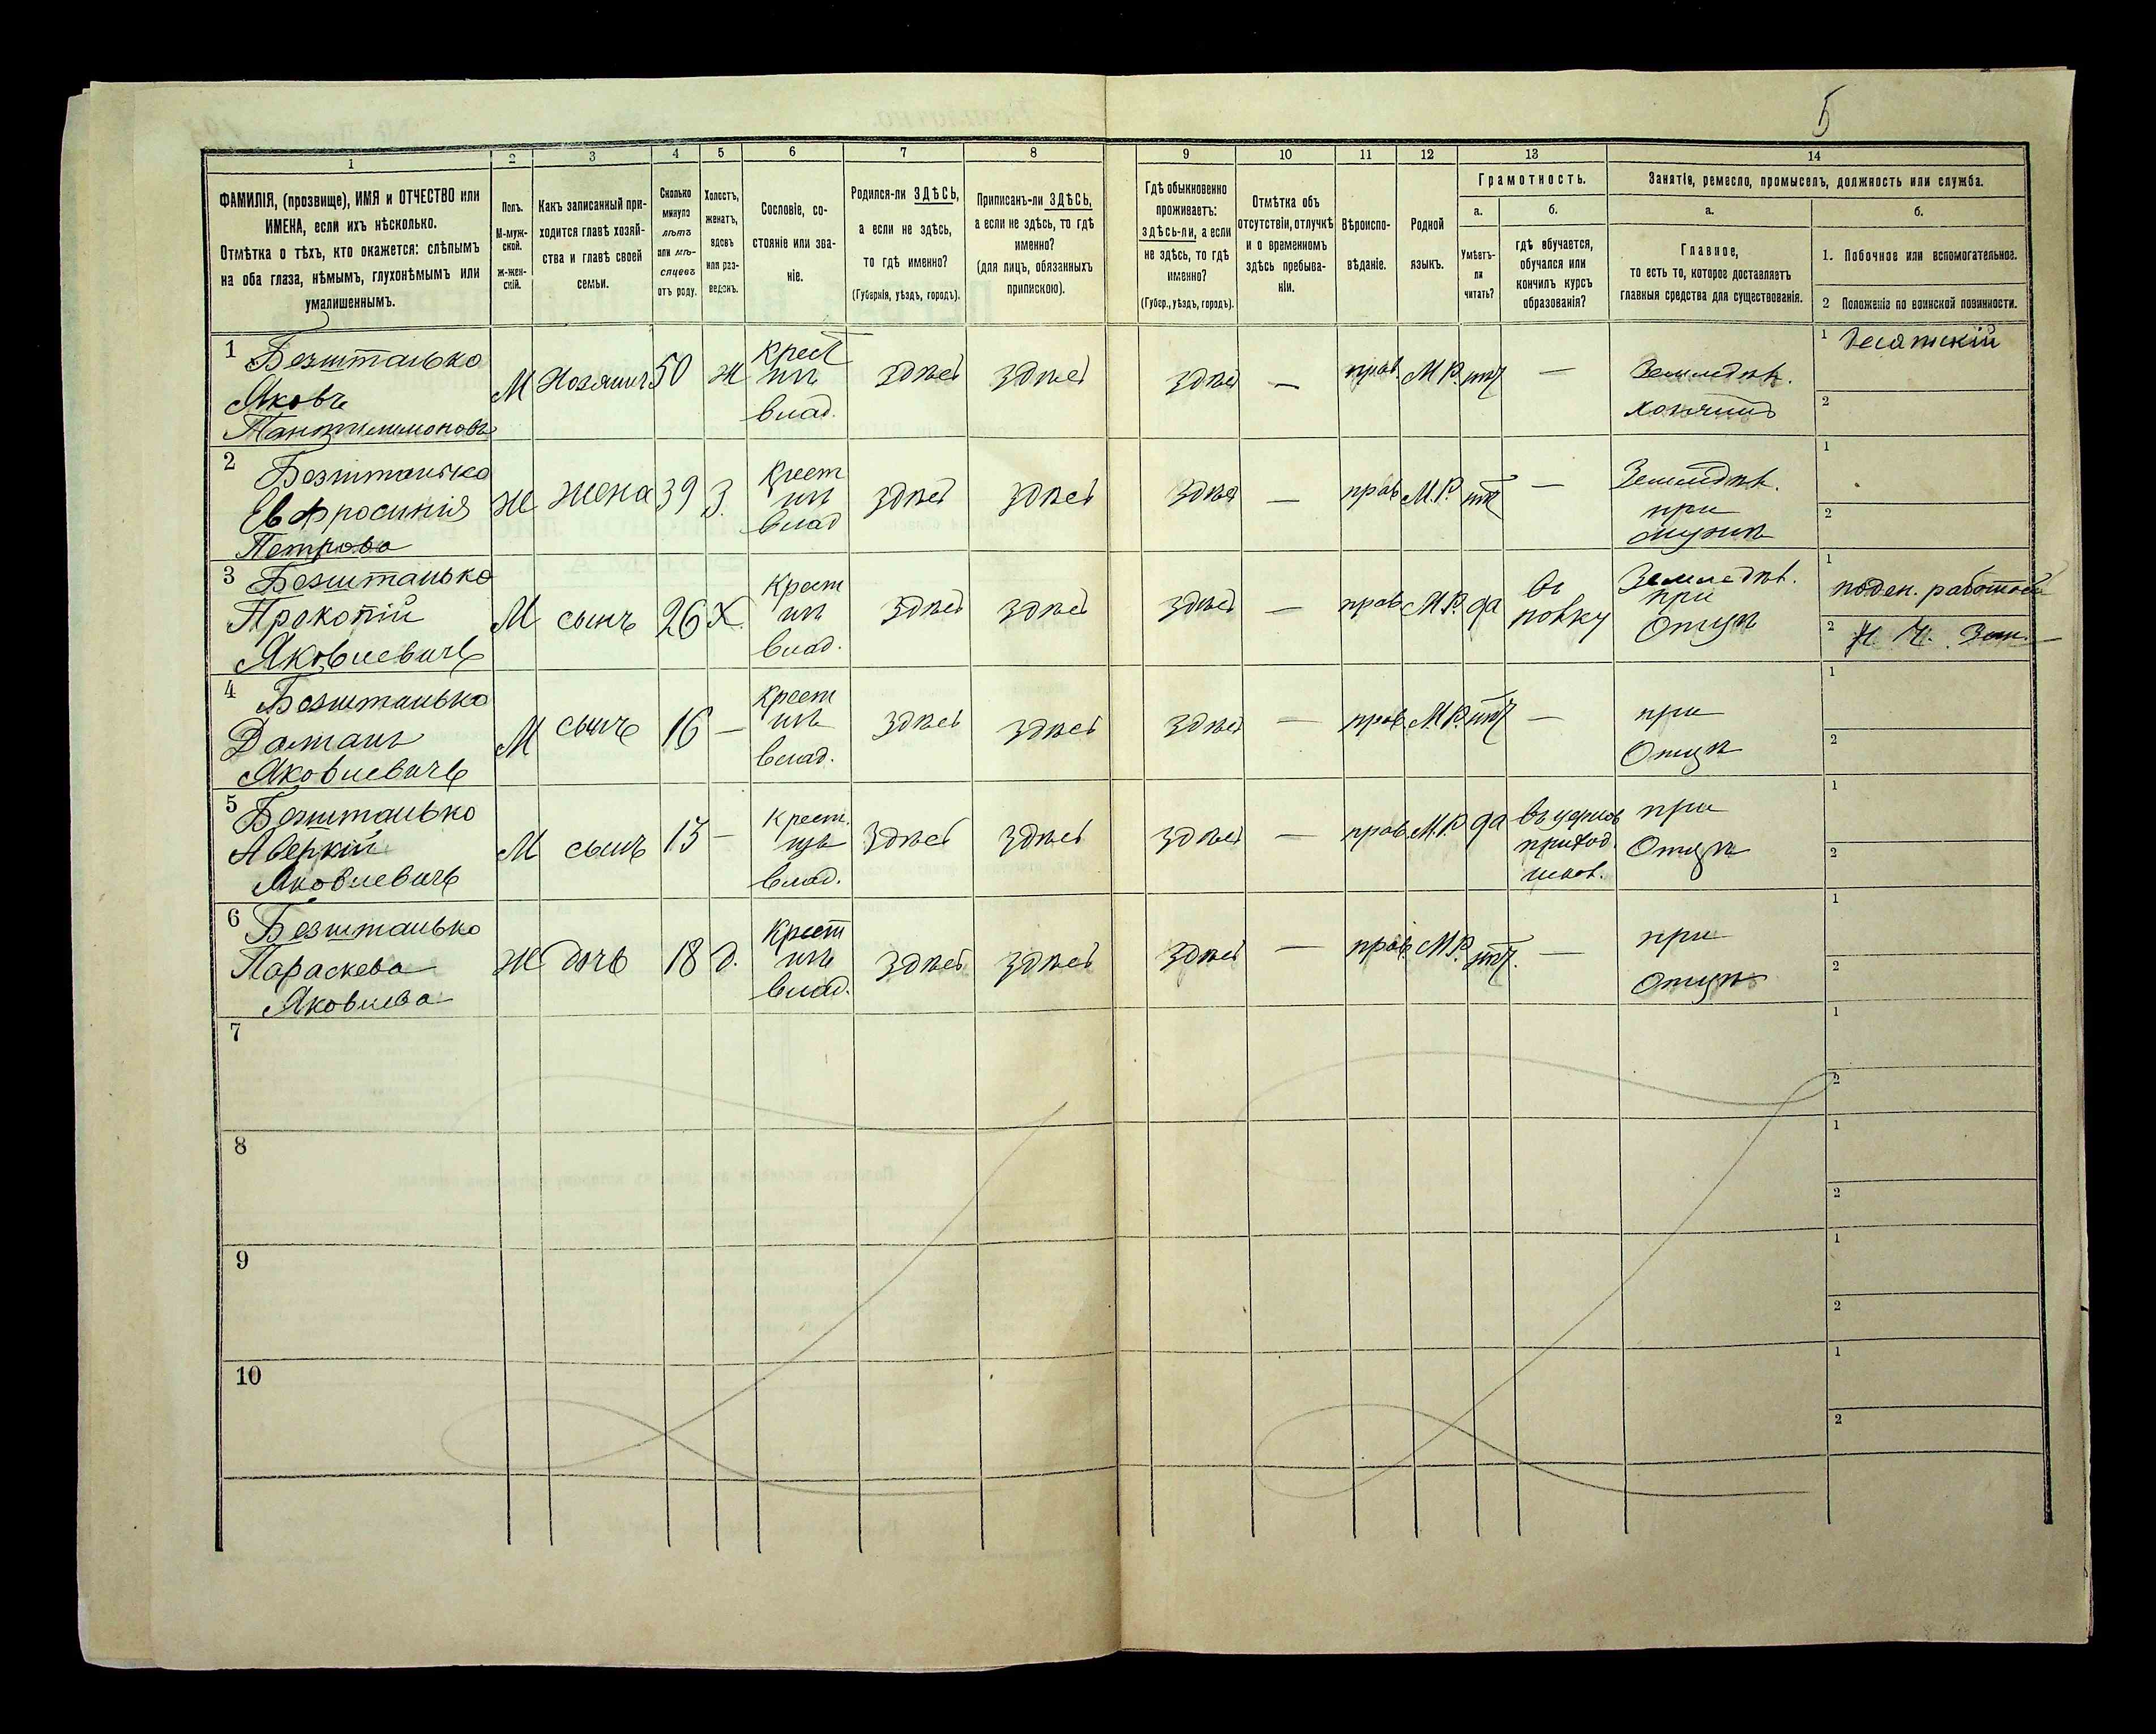 5
1 2 3 4 5 6 7 8 9 10 11 12 13 14
ФАМИЛІЯ, (прозвище), ИМЯ и ОТЧЕСТВО или
ИМЕНА, если ихъ нѣсколько.
Отмѣтка о тѣхъ, кто окажется: слѣпымъ
на оба глаза, нѣмымъ, глухонѣмымъ или
умалишеннымъ.
Полъ.
М-муж-
ской.
ж-жен-
скій.
Какъ записанный при-
ходится главѣ хозяй-
ства и главѣ своей
семьи.
Сколько
минуло
лѣтъ
или мѣ-
сяцевъ
отъ роду.
Холостъ,
женатъ,
вдовъ
или раз-
веденъ.
Сословіе, со-
стояніе или зва-
ніе.
Родился-ли ЗДѢСЬ,
а если не здѣсь,
то гдѣ именно?
(Губернія, уѣздъ, городъ).
Приписанъ-ли ЗДѢСЬ,
а если не здѣсь, то гдѣ
именно?
(для лицъ, обязанныхъ
припискою).
Гдѣ обыкновенно
проживаетъ:
здѣсь-ли, а если
не здѣсь, то гдѣ
именно?
(Губер., уѣздъ, городъ).
Отмѣтка объ
отсутствіи, отлучкѣ
и о временномъ
здѣсь пребыва-
ніи.
Вѣроиспо-
вѣданіе.
Родной
языкъ.
Грамотность.
а.
Умѣетъ-
ли
читать?
б.
гдѣ обучается,
обучался или
кончилъ курсъ
образованія?
Занятіе, ремесло, промыселъ, должность или служба.
а.
Главное,
то есть то, которое доставляетъ
главныя средства для существованія.
б.
1. Побочное или вспомогательное.
2 Положеніе по воинской повинности.
1 Безштанько
Яковъ
Пантилимоновъ
М Хозяинъ 50 ж
Крест
изъ
влад.
здѣсь здѣсь здѣсь — прав. М.Р. нѣт —
Земледѣл.
хозяинъ
1 Десятскій
2
2 Безштанько
Евфросинія
Петрова
Ж жена 39 З.
Крест
изъ
влад
здѣсь здѣсь здѣсь — прав М.Р. нѣт —
Земледѣл.
при
мужѣ
1
2
3 Безштанько
Прокопій
Яковлевичъ
М сынъ 26 Х.
Крест
изъ
влад.
здѣсь здѣсь здѣсь — прав М.Р. да
Земледѣл.
при
Отцѣ
1 поден.
2
4 Безштанько
Яковлевичъ
М сынъ 16 —
Крест
изъ
влад.
здѣсь здѣсь здѣсь — прав М.Р. нѣт —
при
Отцѣ
1
2
5 Безштанько
Аверкій
Яковлевичъ
М сынъ 13 —
Крест.
изъ
влад.
здѣсь здѣсь здѣсь — прав М.Р. да
въ церков
приход.
школ.
при
Отцѣ
1
2
6 Безштанько
Параскева
Яковлева
Ж дочь 18 д.
Крест
изъ
влад.
здѣсь здѣсь здѣсь — прав М.Р. нѣт. —
при
отцѣ
1
2
7
1
2
8
1
2
9
1
2
10
1
2